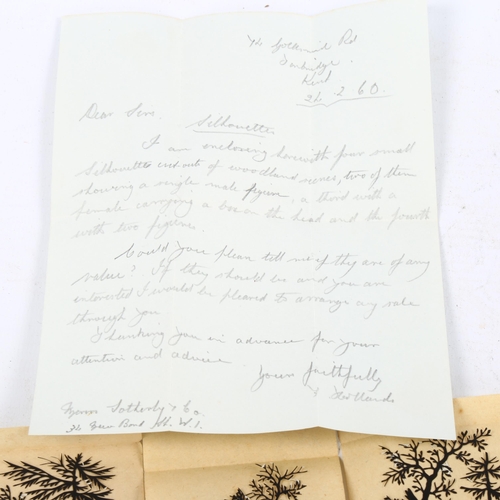 Rd
Tonbridge
Kent
2 60.
Dear Sirs.
Silhouettes
I am enclosing herewith four small
Silhouette cutouts of woodland scenes, two of them
showing a single male figure, a third with a
female carrying a box on the head and the fourth
with two figures.
Could you please tell me if they are of any
value? If they should be and you are
interested I would be pleased to arrange any sale
through you
Thanking you in advance for your
attention and advice
Yours faithfully
Messrs Sotheby & Co
Bond St. W.1.